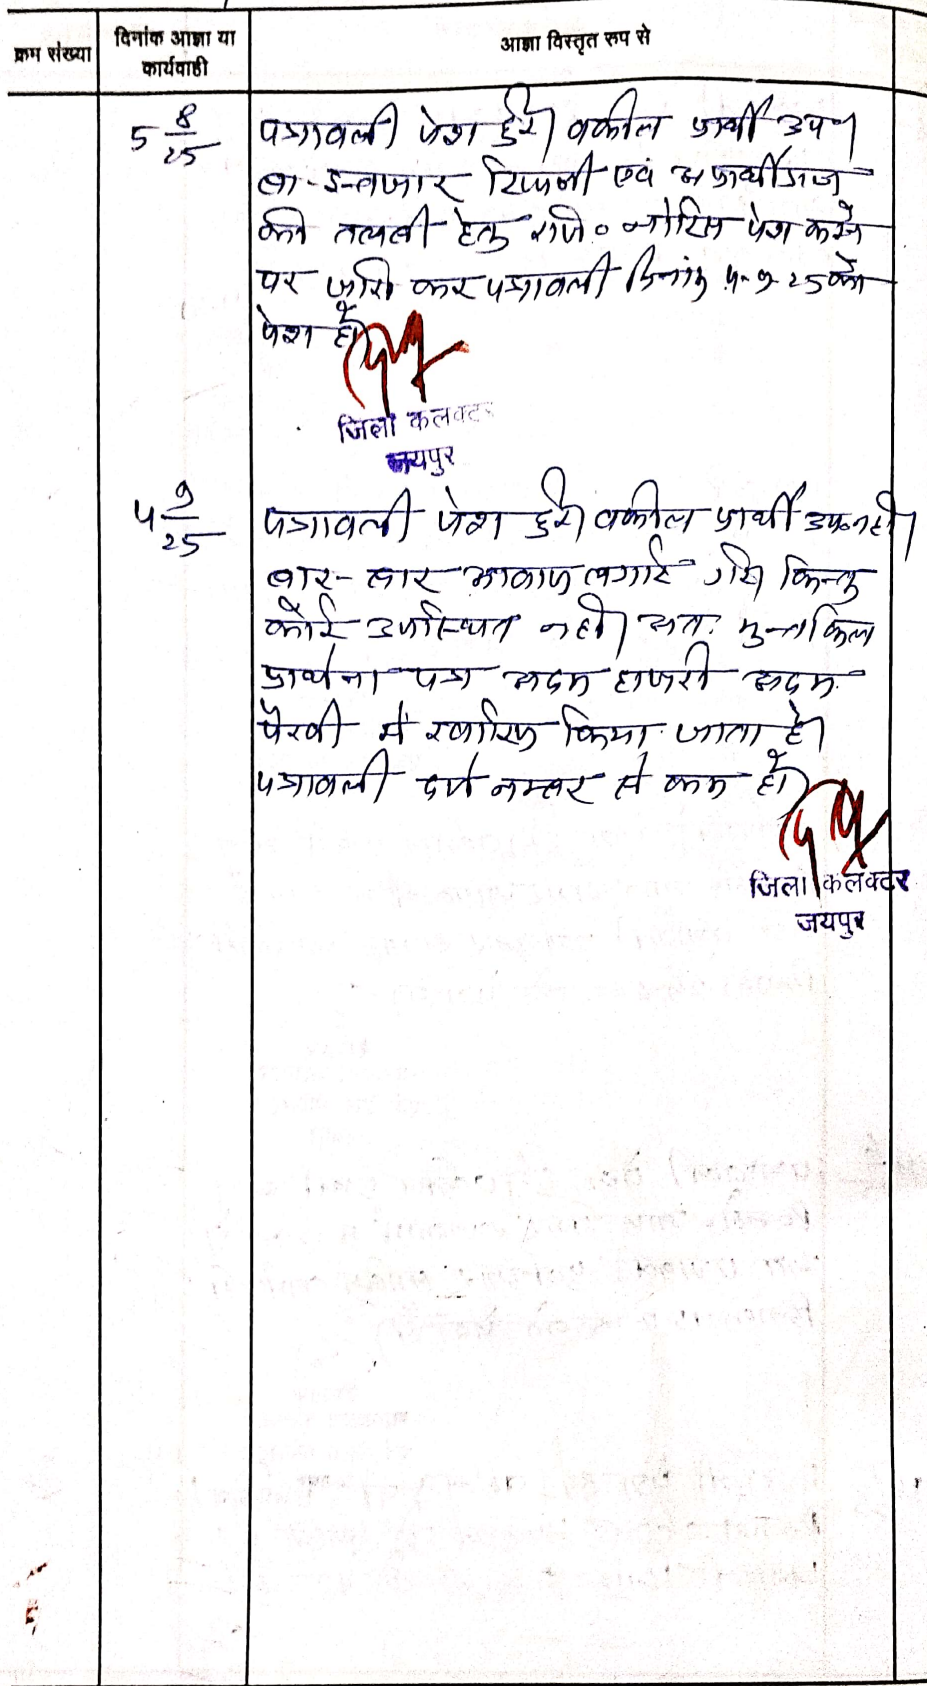 क्रम संख्या
दिनांक आज्ञा या
कार्यवाही
आज्ञा विस्तृत रूप से
5 8/25
पत्रावली पेश हुई। वकील प्रार्थी उप०।
बा-इन्तजार रिपनी एवं अप्रार्थीगण
की तलबी हेतु रजि० नोटिस पेश करने
पर जारी कर पत्रावली दिनांक 4-9-25 को
पेश हो।
जिला कलक्टर
जयपुर
4 9/25
पत्रावली पेश हुई। वकील प्रार्थी उप० नहीं।
बार-बार आवाज लगाई गयी किन्तु
कोई उपस्थित नहीं। अतः मुन्तकिल
प्रार्थना पत्र अदम हाजरी अदम
पैरवी में खारिज किया जाता है।
पत्रावली दर्ज नम्बर से कम हो।
जिला कलक्टर
जयपुर